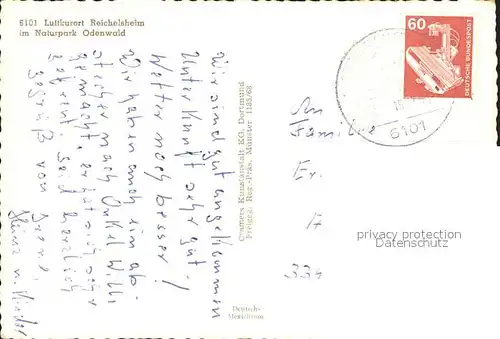 6101 Luftkurort Reichelsheim
im Naturpark Odenwald
Wir sind gut angekommen
Unterkunft sehr gut!
Wetter noch besser!
Wir haben auch ein ab-
stecher nach Onkel Willi
gemacht, er hat sich sehr
gefreut. Seid herzlich
gegrüßt von
Irene,
Heinz u. Kinder
Cramers Kunstanstalt KG, Dortmund
Freigeg. Reg.-Präs. Münster
60
DEUTSCHE BUNDESPOST
6101
An
Familie
Er.
A
334
privacy protection
Datenschutz
Deutsche